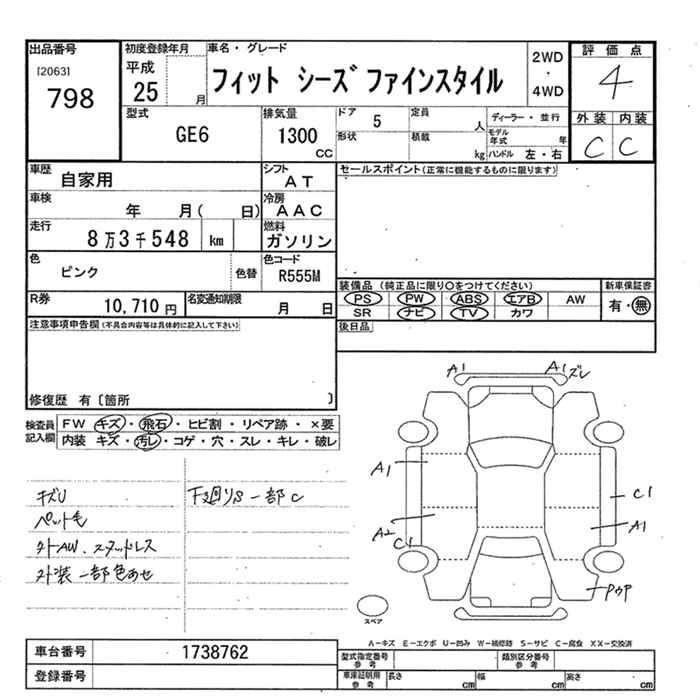 出品番号 初度登録年月 車名・グレード 2WD ・ 4WD 評価点
[2063] 平成 フィット シーズ ファインスタイル 4
798 25 月
型式 排気量 ドア 定員 ディーラー・並行 外装 内装
GE6 1300 CC 5 人 モデル年式 年 C C
形状 積載 kg ハンドル 左・右
車歴 自家用 シフト AT セールスポイント(正常に機能するものに限ります)
車検 年 月( 日) 冷房 AAC
走行 8万3千548 km 燃料 ガソリン
色 ピンク 色替 色コード R555M
装備品 (純正品に限り○をつけてください) 新車保証書
R券 10,710円 名変通知期限 月 日 PS PW ABS エアB AW 有・無
SR ナビ TV カワ
注意事項申告欄(不具合内容等は具体的に記入して下さい) 後日品
修復歴 有〔箇所 〕
検査員記入欄 FW キズ・飛石・ヒビ割・リペア跡・×要
内装 キズ・汚レ・コゲ・穴・スレ・キレ・破レ
A1 A1 ズレ
A1
キズU 下廻りS 一部C C1
ペット毛 A2 A1
外AW、スタッドレス C1
外装一部色あせ
スペア
A-キズ E-エクボ U-凹み W-補修跡 S-サビ C-腐食 XX-交換済
車台番号 1738762 型式指定番号 参考 類別区分番号 参考
登録番号 車庫証明用 参考 長さ cm 幅 cm 高さ cm